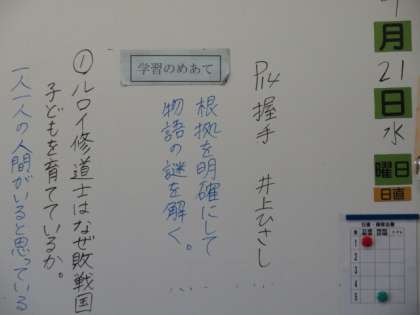 月
21
日
水
曜日
日直
P14 握手 井上ひさし
学習のめあて
根拠を明確にして
物語の謎を解く。
①ルロイ修道士はなぜ敗戦国
子どもを育てているか。
一人一人の人間がいると思っている